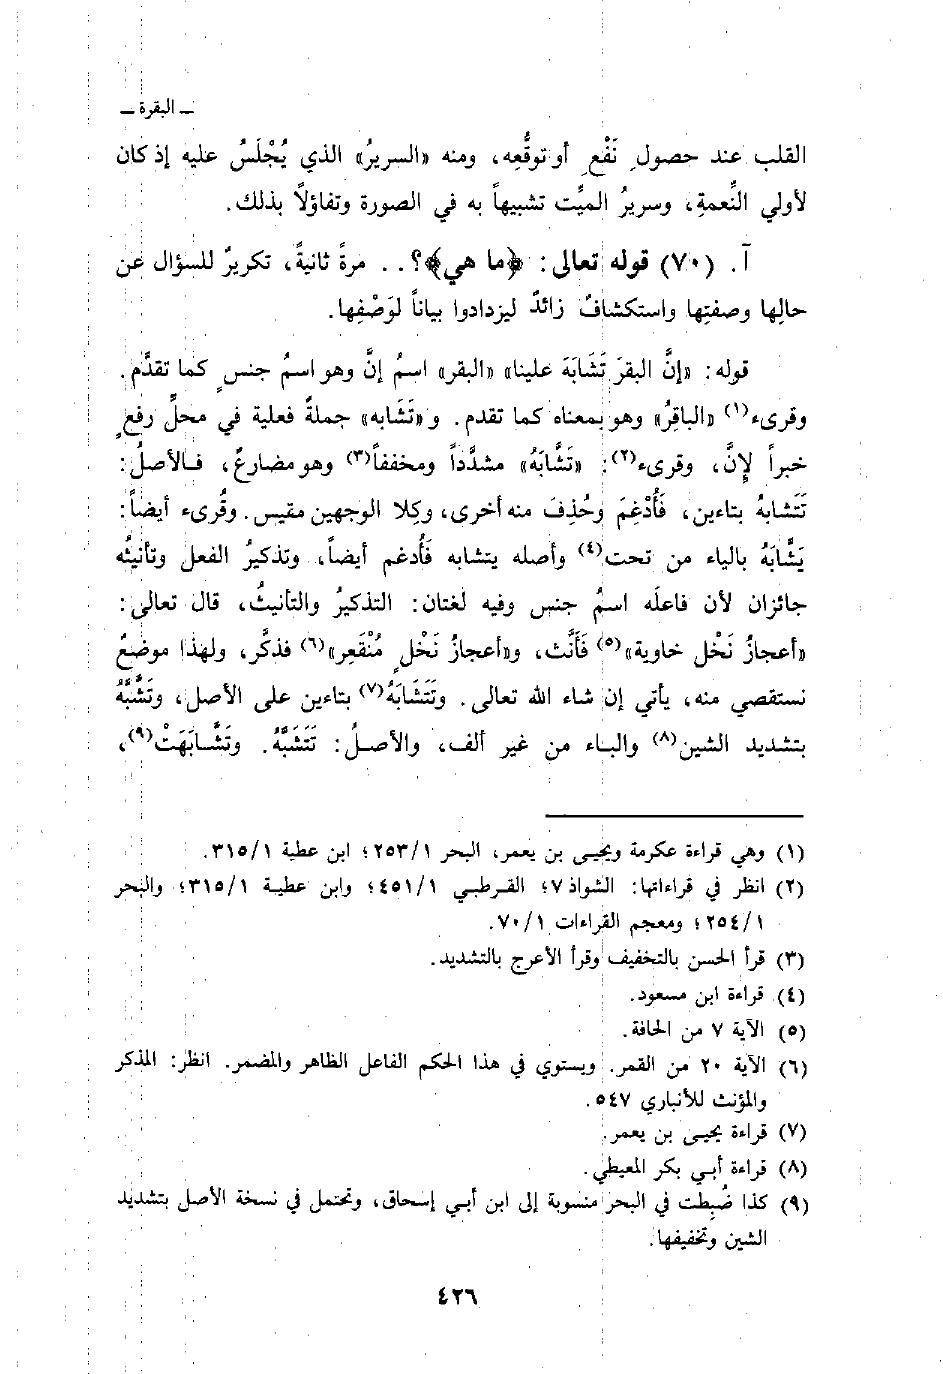 ـ البقرة ـ
القلب عند حصولِ نَفْعٍ أو توقُّعِه، ومنه «السريرُ» الذي يُجْلَسُ عليه إذ كان
لأولي النِّعمةِ، وسريرُ الميِّت تشبيهاً به في الصورة وتفاؤلاً بذلك.
آ. (٧٠) قوله تعالى: ﴿ما هي﴾؟.. مرةً ثانيةً، تكريرٌ للسؤال عن
حالِها وصفتِها واستكشافٌ زائدٌ ليزدادوا بياناً لوَصْفِها.
قوله: «إنَّ البقرَ تَشَابَهَ علينا» «البقر» اسمُ إنَّ وهو اسمُ جنسٍ كما تقدَّم.
وقرىء(١) «الباقِرُ» وهو بمعناه كما تقدم. و«تَشَابه» جملةٌ فعلية في محلِّ رفعٍ
خبراً لإِنَّ، وقرىء(٢): «تَشَّابَهُ» مشدَّداً ومخففاً(٣) وهو مضارعٌ، فالأصلُ:
تَتَشابهُ بتاءين، فَأُدْغِمَ وحُذِفَ منه أخرى، وكِلا الوجهين مقيس. وقُرىء أيضاً:
يَشَّابَهُ بالياء من تحت(٤) وأصله يتشابه فَأُدغم أيضاً، وتذكيرُ الفعل وتأنيثُه
جائزان لأن فاعلَه اسمُ جنس وفيه لغتان: التذكيرُ والتأنيثُ، قال تعالى:
«أعجازُ نَخْل خاوية»(٥) فَأَنَّث، و«أعجازُ نَخْلٍ مُنْقَعِر»(٦) فذكَّر، ولهذا موضعٌ
نستقصي منه، يأتي إن شاء الله تعالى. وتَتَشَابَهُ(٧) بتاءين على الأصل، وتَشَّبَّهُ
بتشديد الشين(٨) والباء من غير ألف، والأصلُ: تَتَشَبَّهُ. وتَشَّابَهَتْ(٩)،
(١) وهي قراءة عكرمة ويحيى بن يعمر، البحر ٢٥٣/١؛ ابن عطية ٣١٥/١.
(٢) انظر في قراءاتها: الشواذ ٧؛ القرطبي ٤٥١/١؛ وابن عطية ٣١٥/١؛ والبحر
٢٥٤/١؛ ومعجم القراءات ٧٠/١.
(٣) قرأ الحسن بالتخفيف وقرأ الأعرج بالتشديد.
(٤) قراءة ابن مسعود.
(٥) الآية ٧ من الحاقة.
(٦) الآية ٢٠ من القمر. ويستوي في هذا الحكم الفاعل الظاهر والمضمر. انظر: المذكر
والمؤنث للأنباري ٥٤٧.
(٧) قراءة يحيى بن يعمر.
(٨) قراءة أبي بكر المعيطي.
(٩) كذا ضُبِطت في البحر منسوبة إلى ابن أبي إسحاق، وتحتمل في نسخة الأصل بتشديد
الشين وتخفيفها.
٤٢٦